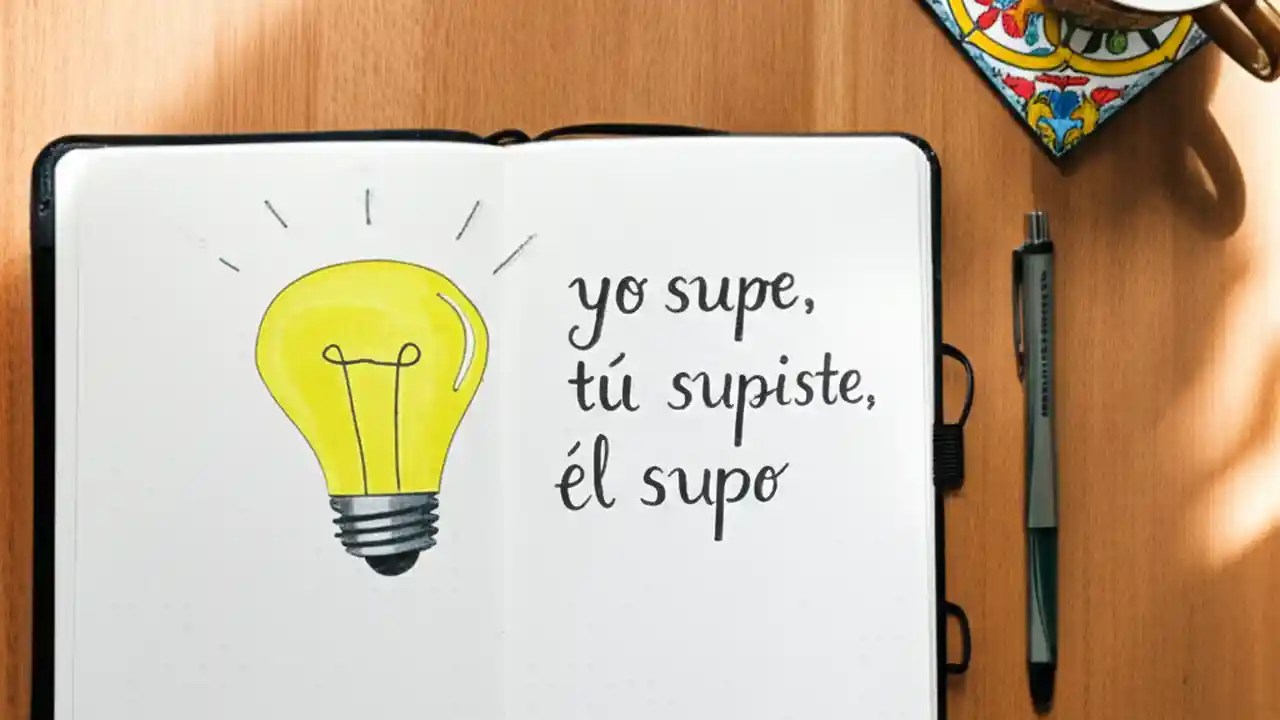 yo supe,
tú supiste,
él supo